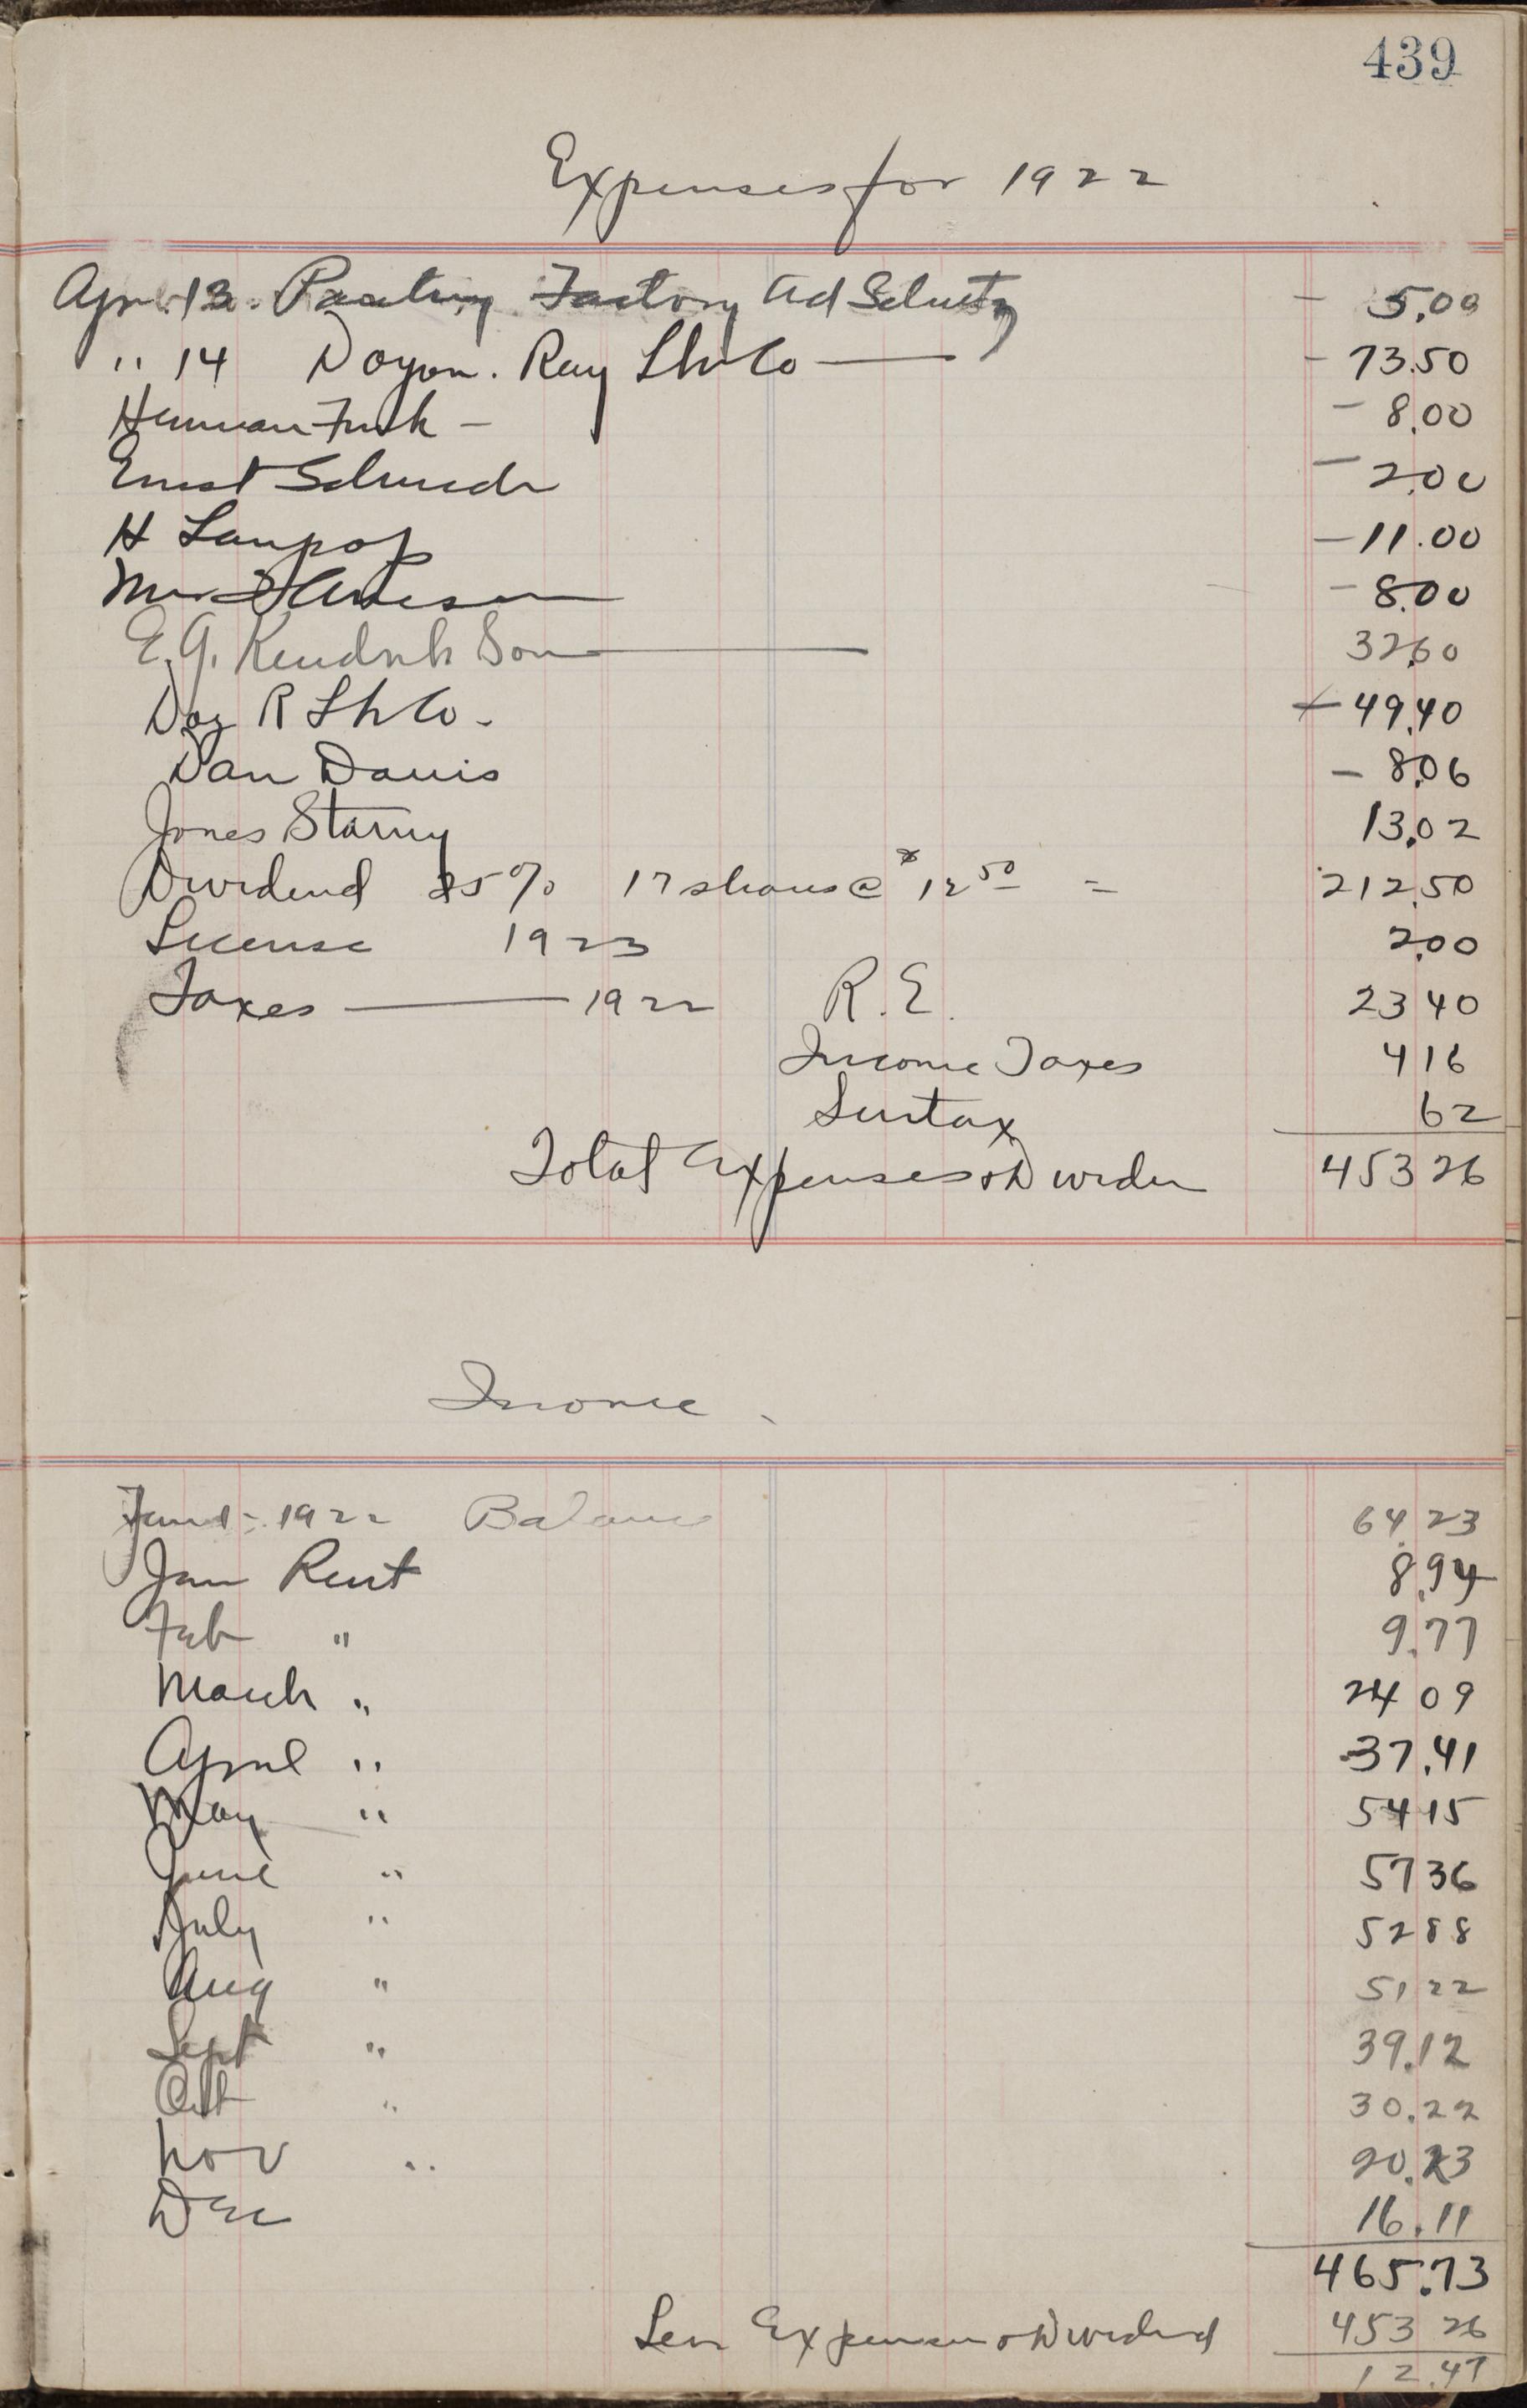 439
Expenses for 1922
Apr. 13. Factory Ad Schultz - 5.00
" 14 Doyon. Ray Lbr Co - 73.50
Herman Funk - - 8.00
Ernst - 2.00
H Laupop - 11.00
- 8.00
E. G. Kendrick Son 32.60
Doy R Lbr Co - 49.40
Dan Davis - 8.06
Jones 13.02
Dividend 25% 17 shares @ 12 50 = 212.50
License 1923 2.00
Taxes 1922 R.E. 23 40
Income Taxes 4 16
Surtax 62
Total Expenses & Dividen 453 26
Income
Jan 1 - 1922 Balance 64 23
Jan Rent 8.94
Feb " 9.77
March " 24 09
April " 37.41
May " 54 15
June " 57 36
July " 52 88
Aug " 51 22
Sept " 39.12
Oct " 30.22
Nov " 20.23
Dec 16.11
465.73
Less Expenses & Dividend 453 26
12.47